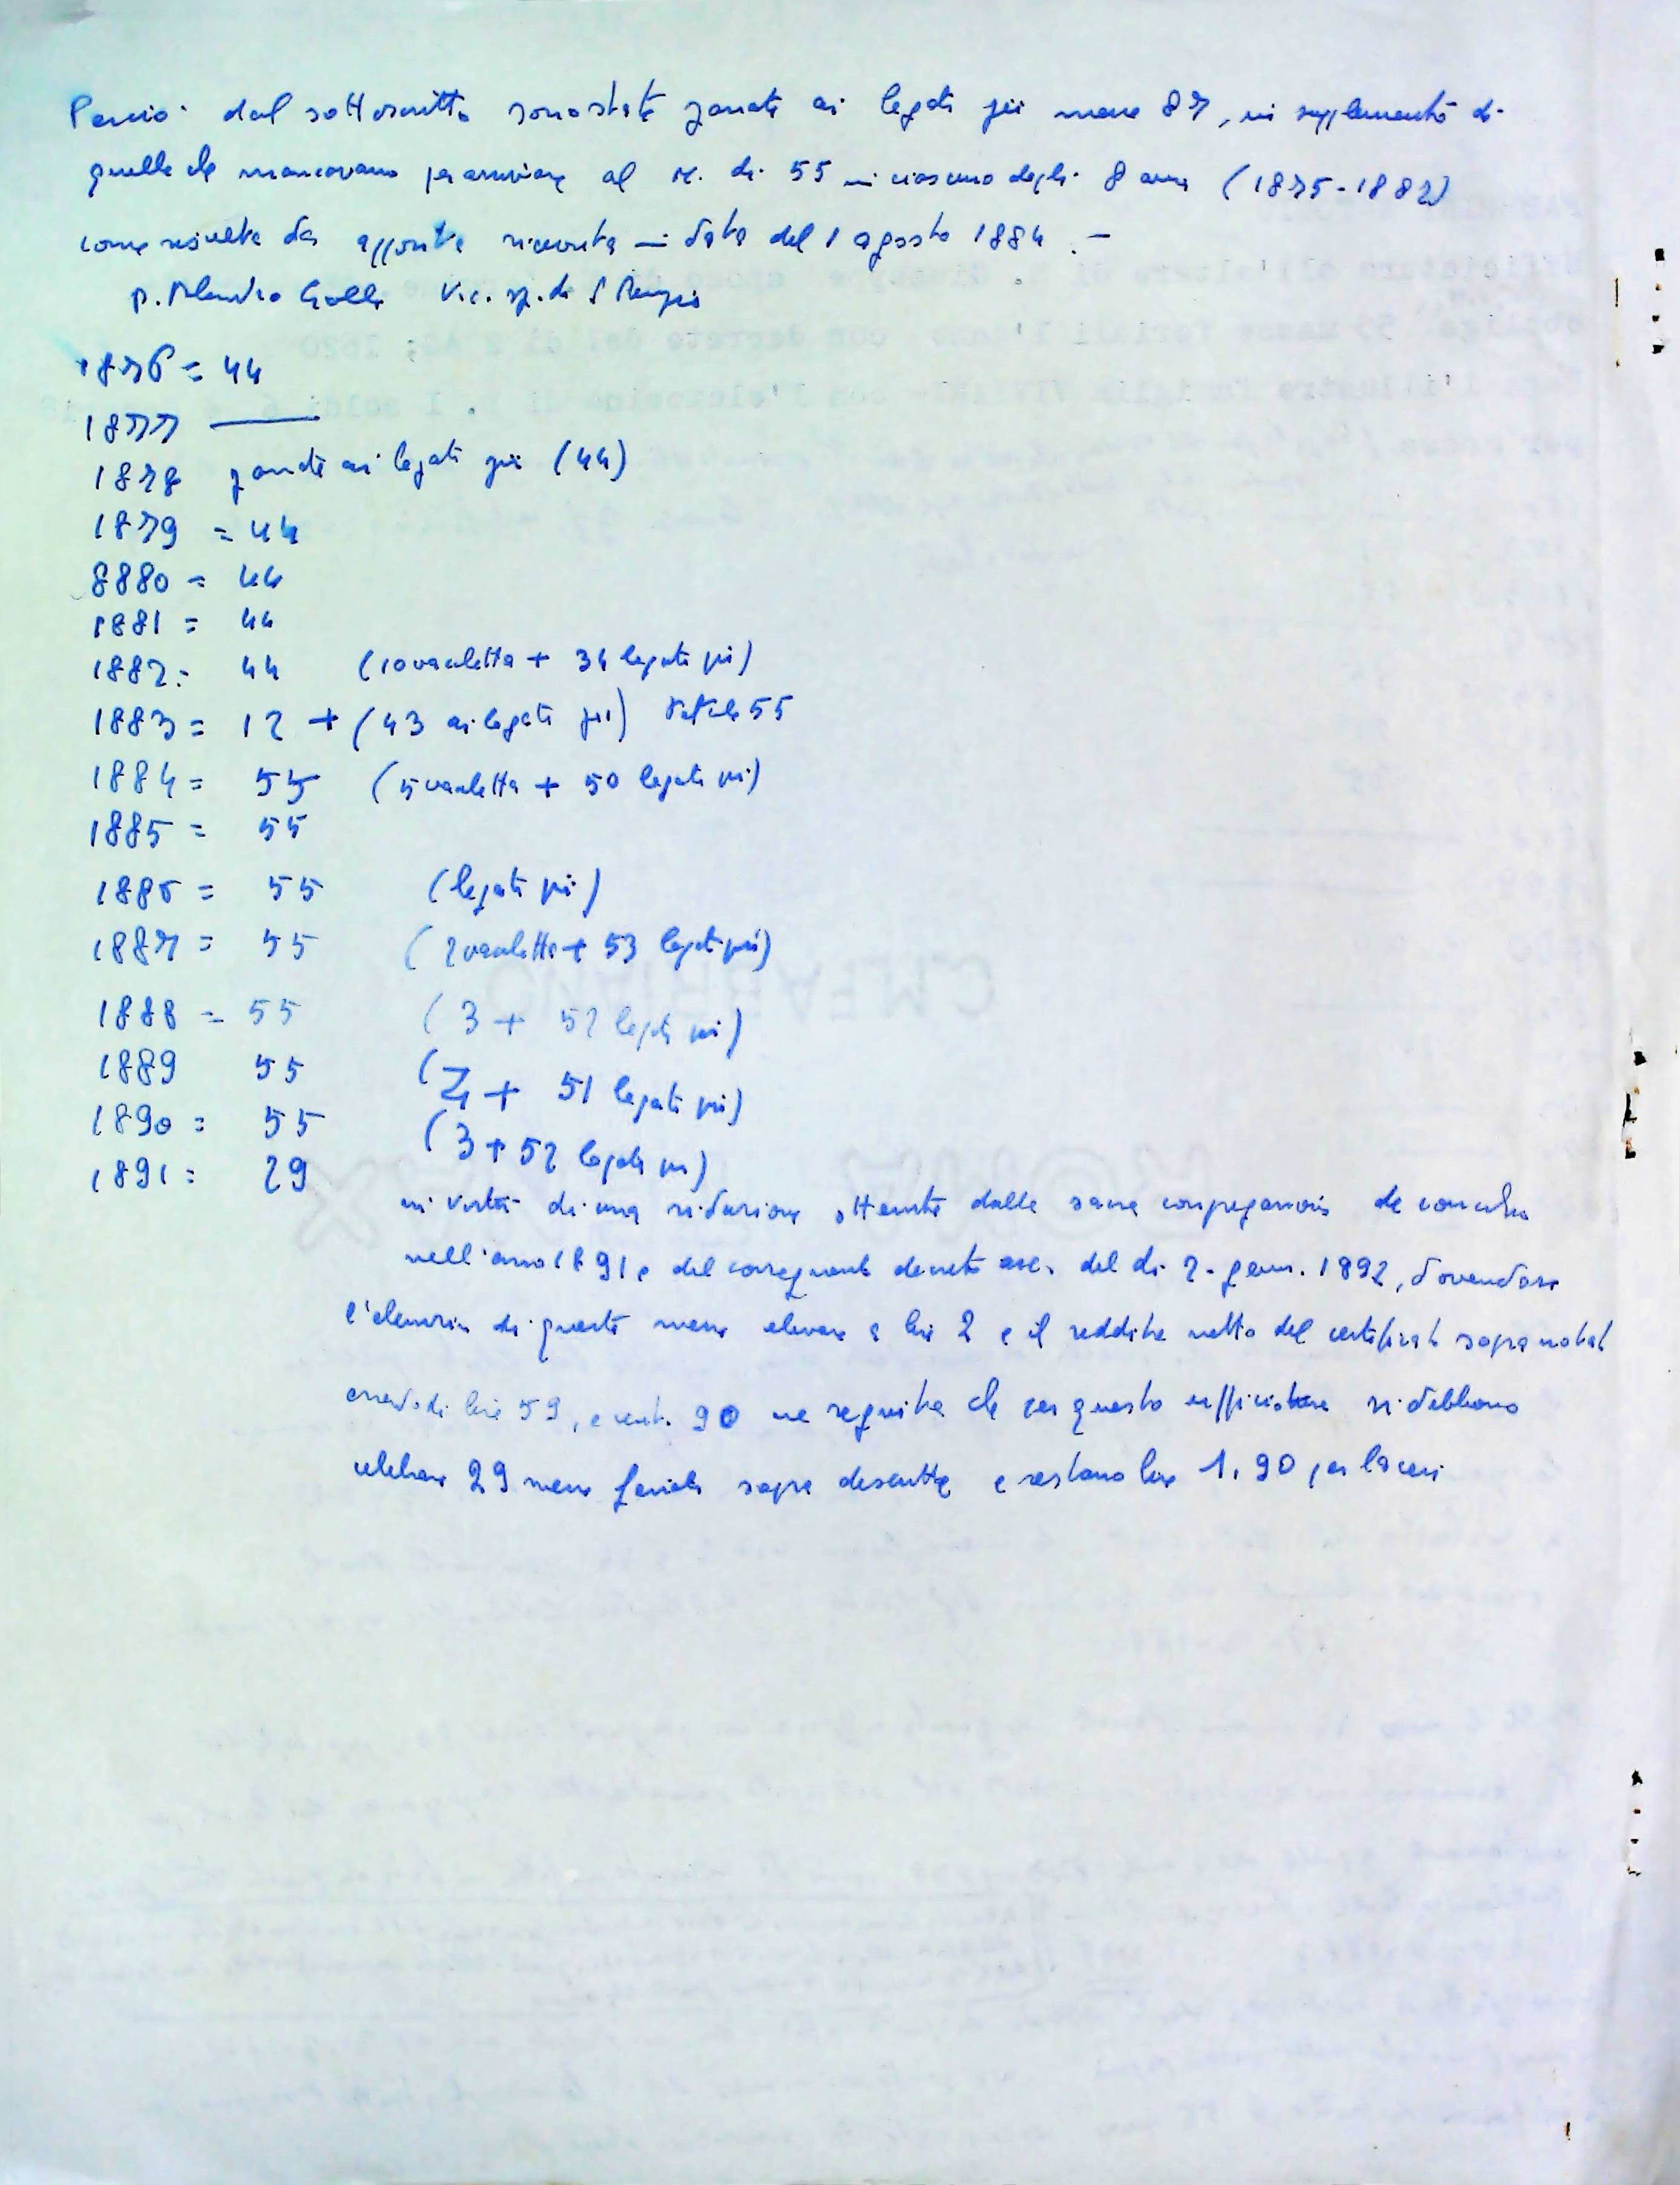 Perciò dal sottoscritto sono state passate ai legati pii messe 87, in supplemento di
quelle che mancavano per arrivare al n. di 55 in ciascuno degli 8 anni (1875-1882)
come risulta da apposita ricevuta in data del 1 agosto 1884. -
p. Galli Vic. sp. di S
1876 = 44
1877 ———
1878 passate ai legati pii (44)
1879 = 44
8880 = 44
1881 = 44
1882 = 44 (10 vacchetta + 34 legati pii)
1883 = 12 + (43 ai legati pii) totale 55
1884 = 55 (5 vacchetta + 50 legati pii)
1885 = 55
1886 = 55 (legati pii)
1887 = 55 (2 vacchetta + 53 legati pii)
1888 = 55 (3 + 52 legati pii)
1889 55 (4 + 51 legati pii)
1890 = 55 (3 + 52 legati pii)
1891 = 29
in virtù di una riduzione ottenuta dalla sacra congregazione del concilio
nell'anno 1891 e del conseguente decreto del dì 2 genn. 1892, dovendosi
l'elemosina di queste messe elevare a lire 2 e il reddito netto del certificato sopra notat
essendo di lire 59, e cent. 90 ne seguita che per questa ufficiatura si debbono
celebrare 29 messe feriali sopra descritte e restano lire 1,90 per la cera